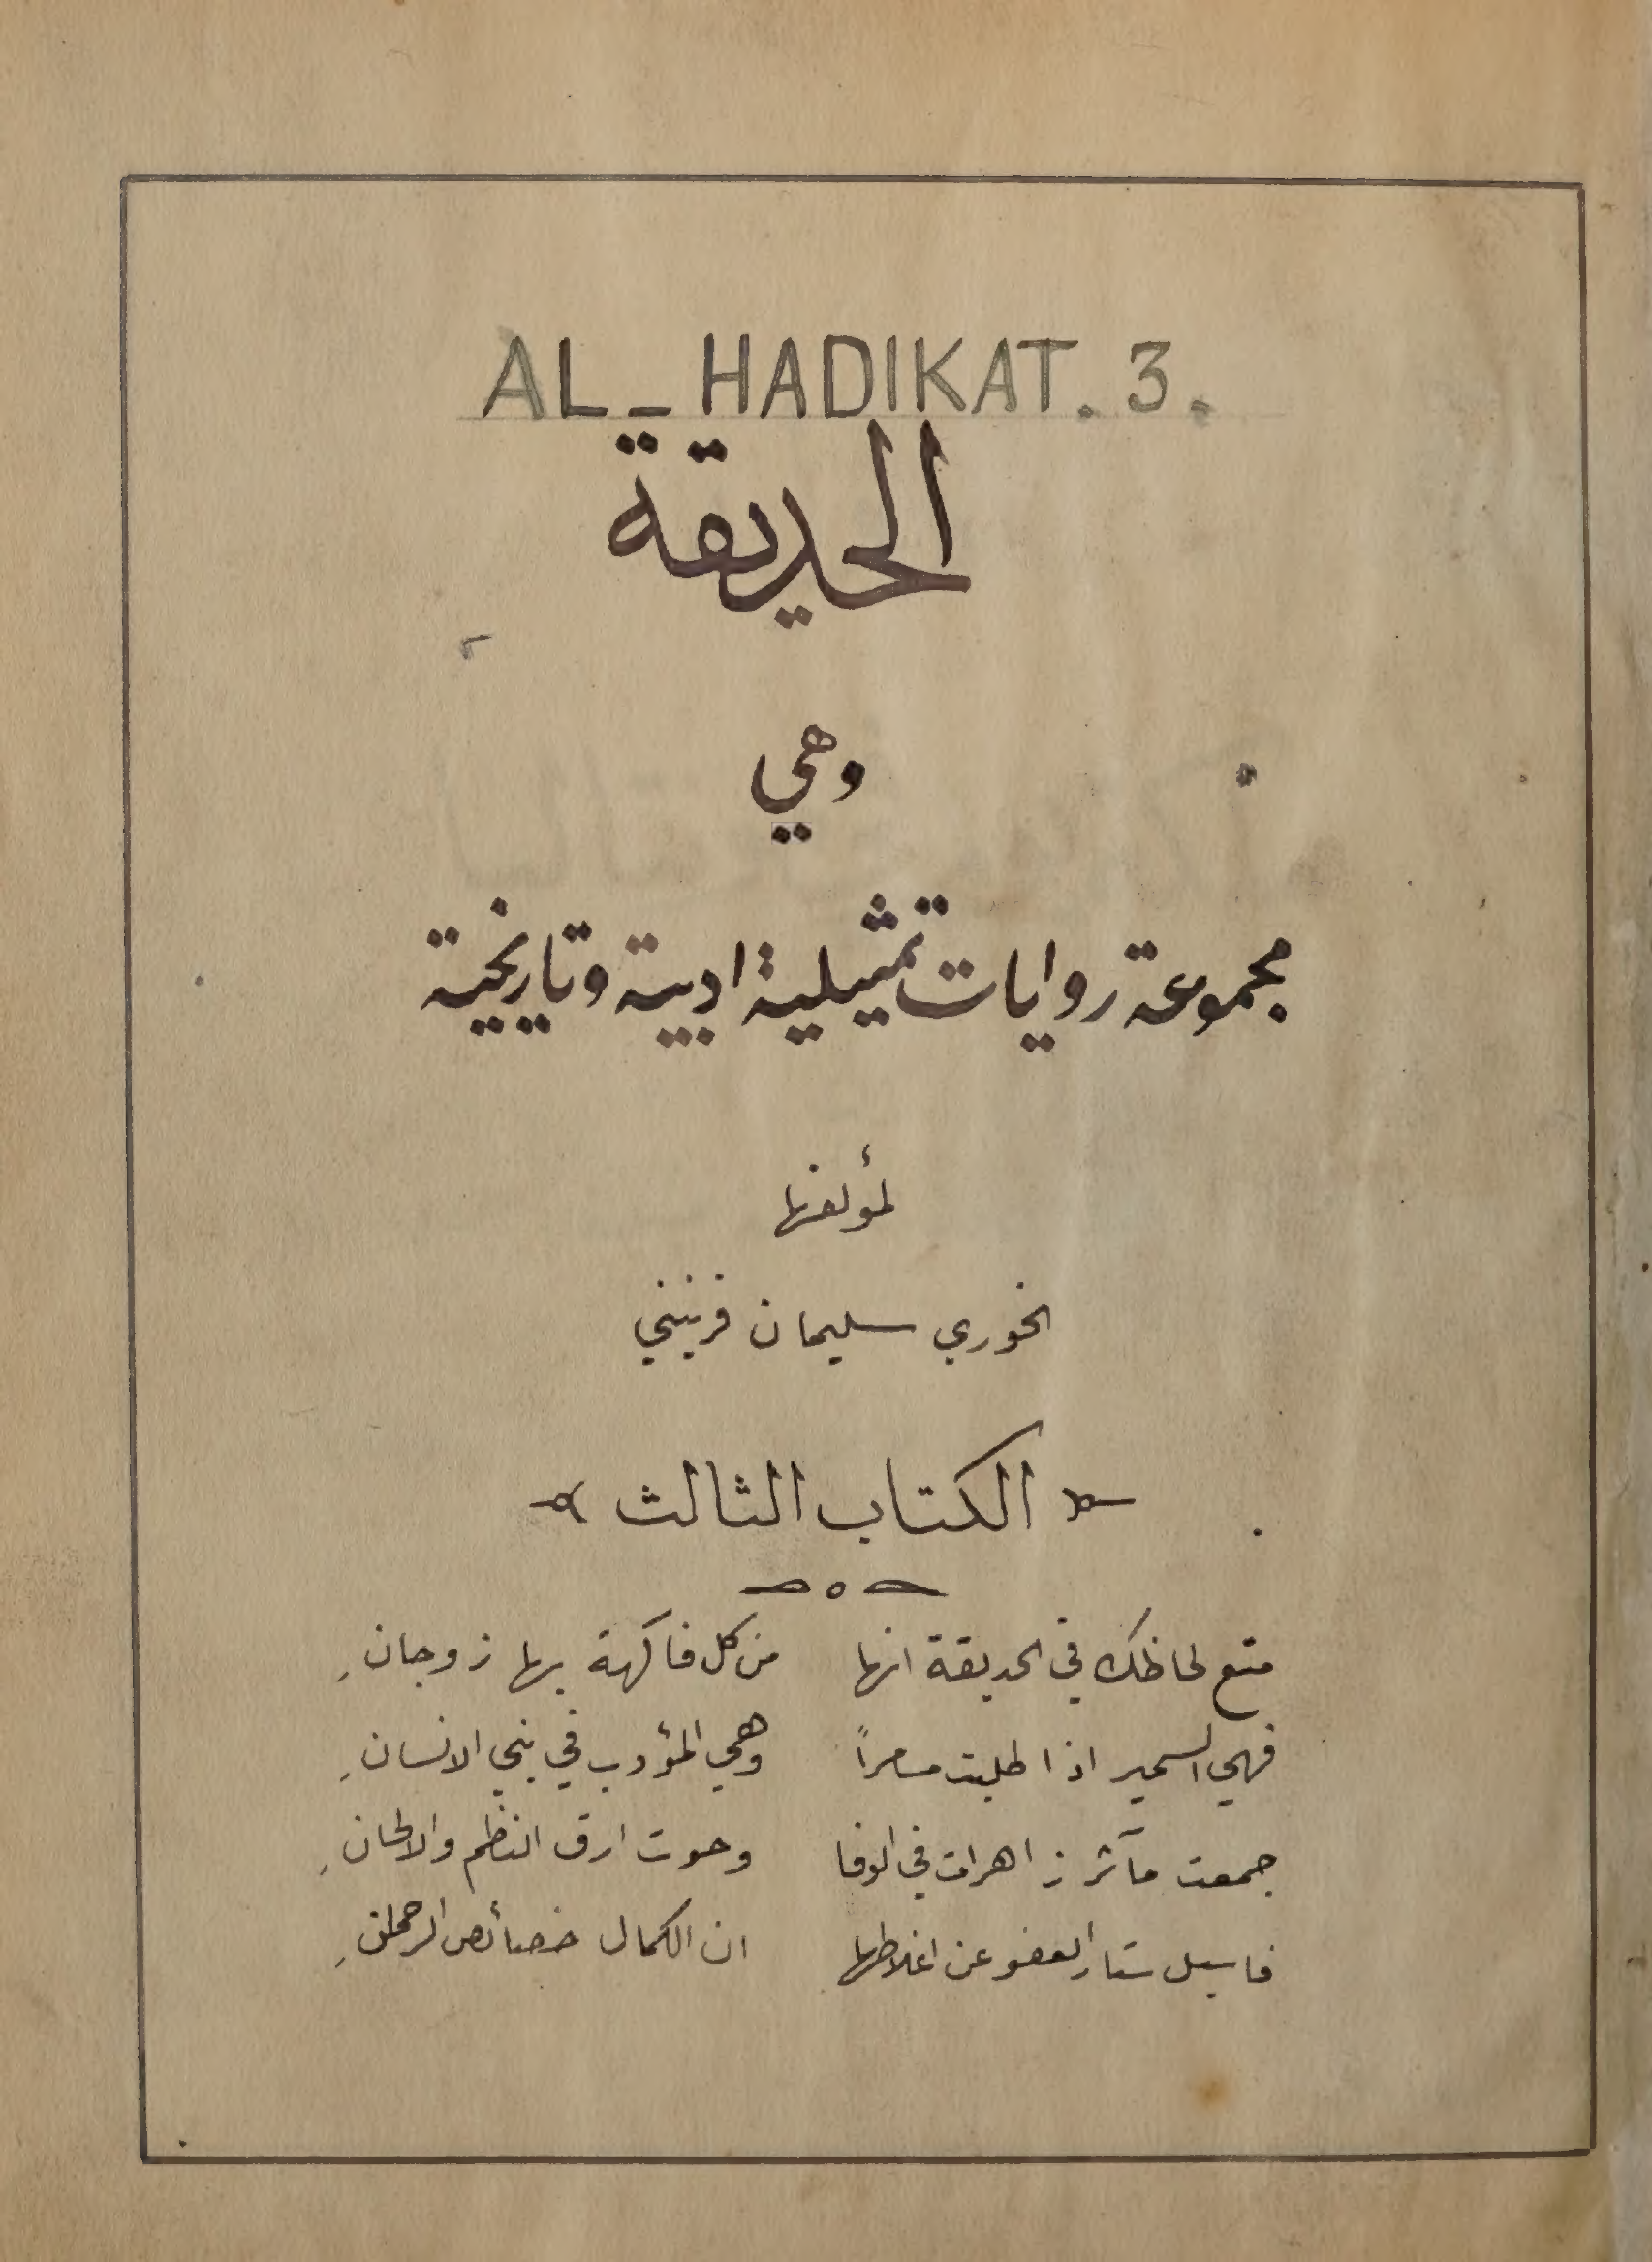 AL_HADIKAT. 3.
الحديقة
وهي
مجموعة روايات تمثيلية ادبية وتاريخية
لمؤلفها
الخوري سليمان فرنيني
الكتاب الثالث
متع لحاظك في الحديقة انها من كل فاكهة بها زوجانِ
فهي السمير اذا طلبت مسامراً وهي المؤدب في بني الانسانِ
جمعت مآثر زاهرات في الوفا وحوت ارق النظم والالحانِ
فاسبل ستار العفو عن اغلاطها ان الكمال خصائص الرحمانِ